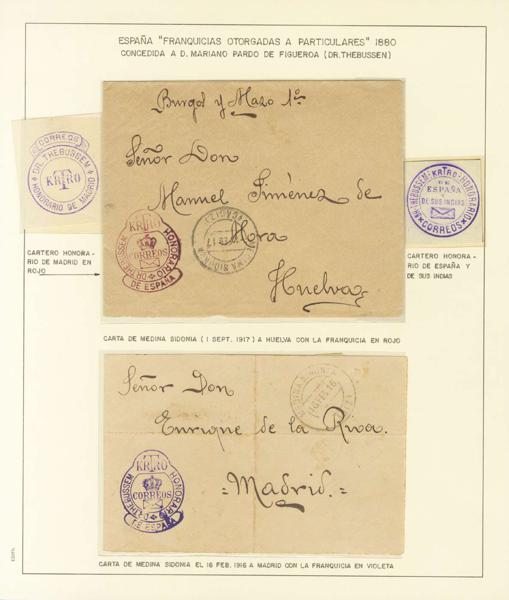 ESPAÑA "FRANQUICIAS OTORGADAS A PARTICULARES" 1880
CONCEDIDA A D. MARIANO PARDO DE FIGUEROA (DR. THEBUSSEN)
Burgos y Mazo 1º
Señor Don
Manuel Jiménez de
Mora
Huelva
CORREOS
DR. THEBUSSEM
KRTRO
HONORARIO DE MADRID
CARTERO HONORA-
RIO DE MADRID EN
ROJO
KRTRO
HONORARIO
DR. THEBUSSEM
CORREOS
DE ESPAÑA
(CADIZ)
DR. THEBUSSEM KRTRO HONORARIO
DE
ESPAÑA
Y
DE SUS INDIAS
CORREOS
CARTERO HONORA-
RIO DE ESPAÑA Y
DE SUS INDIAS
CARTA DE MEDINA SIDONIA (1 SEPT. 1917) A HUELVA CON LA FRANQUICIA EN ROJO
Señor Don
Enrique de la Riva.
=Madrid.=
MEDINA SIDONIA
16 FEB 16
KRTRO
HONORARIO
DR. THEBUSSEM
CORREOS
DE ESPAÑA
CARTA DE MEDINA SIDONIA EL 16 FEB. 1916 A MADRID CON LA FRANQUICIA EN VIOLETA